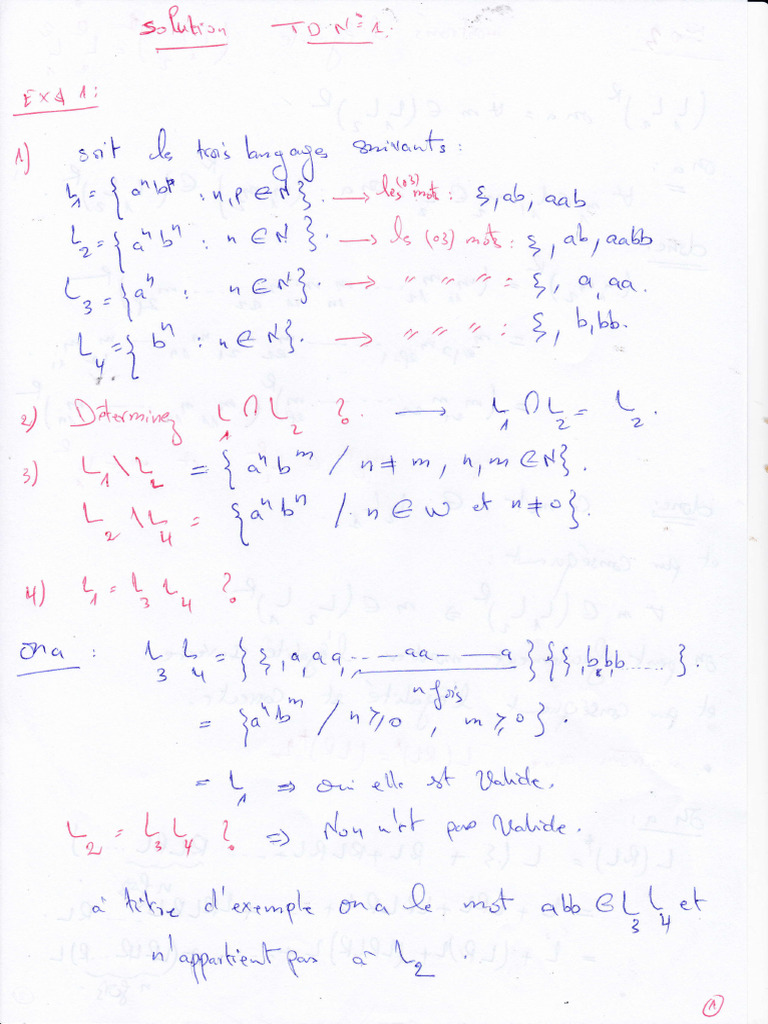 Solution TD N=1.
EX§ 1:
1) soit les trois langages suivants:
L1 = { a^n b^p : n, p ∈ N }. → les (03) mots: ξ, ab, aab
L2 = { a^n b^n : n ∈ N }. → les (03) mots: ξ, ab, aabb
L3 = { a^n : n ∈ N }. → " " " = ξ, a, aa.
L4 = { b^n : n ∈ N }. → " " " : ξ, b, bb.
2) Déterminez L1 ∩ L2 ? → L1 ∩ L2 = L2.
3) L1 \ L2 = { a^n b^m / n ≠ m, n, m ∈ N }.
L2 \ L4 = { a^n b^n / n ∈ W et n ≠ 0 }.
4) L1 = L3 L4 ?
on a : L3 L4 = { ξ, a, aa, ... aa ... a } { ξ, b, bb, ...... }.
n fois
= { a^n b^m / n ≥ 0, m ≥ 0 }.
= L1 ⇒ oui elle est Valide.
L2 = L3 L4 ? ⇒ Non n'est pas Valide.
à titre d'exemple on a le mot abb ∈ L3 L4 et
n'appartient pas à L2.
1